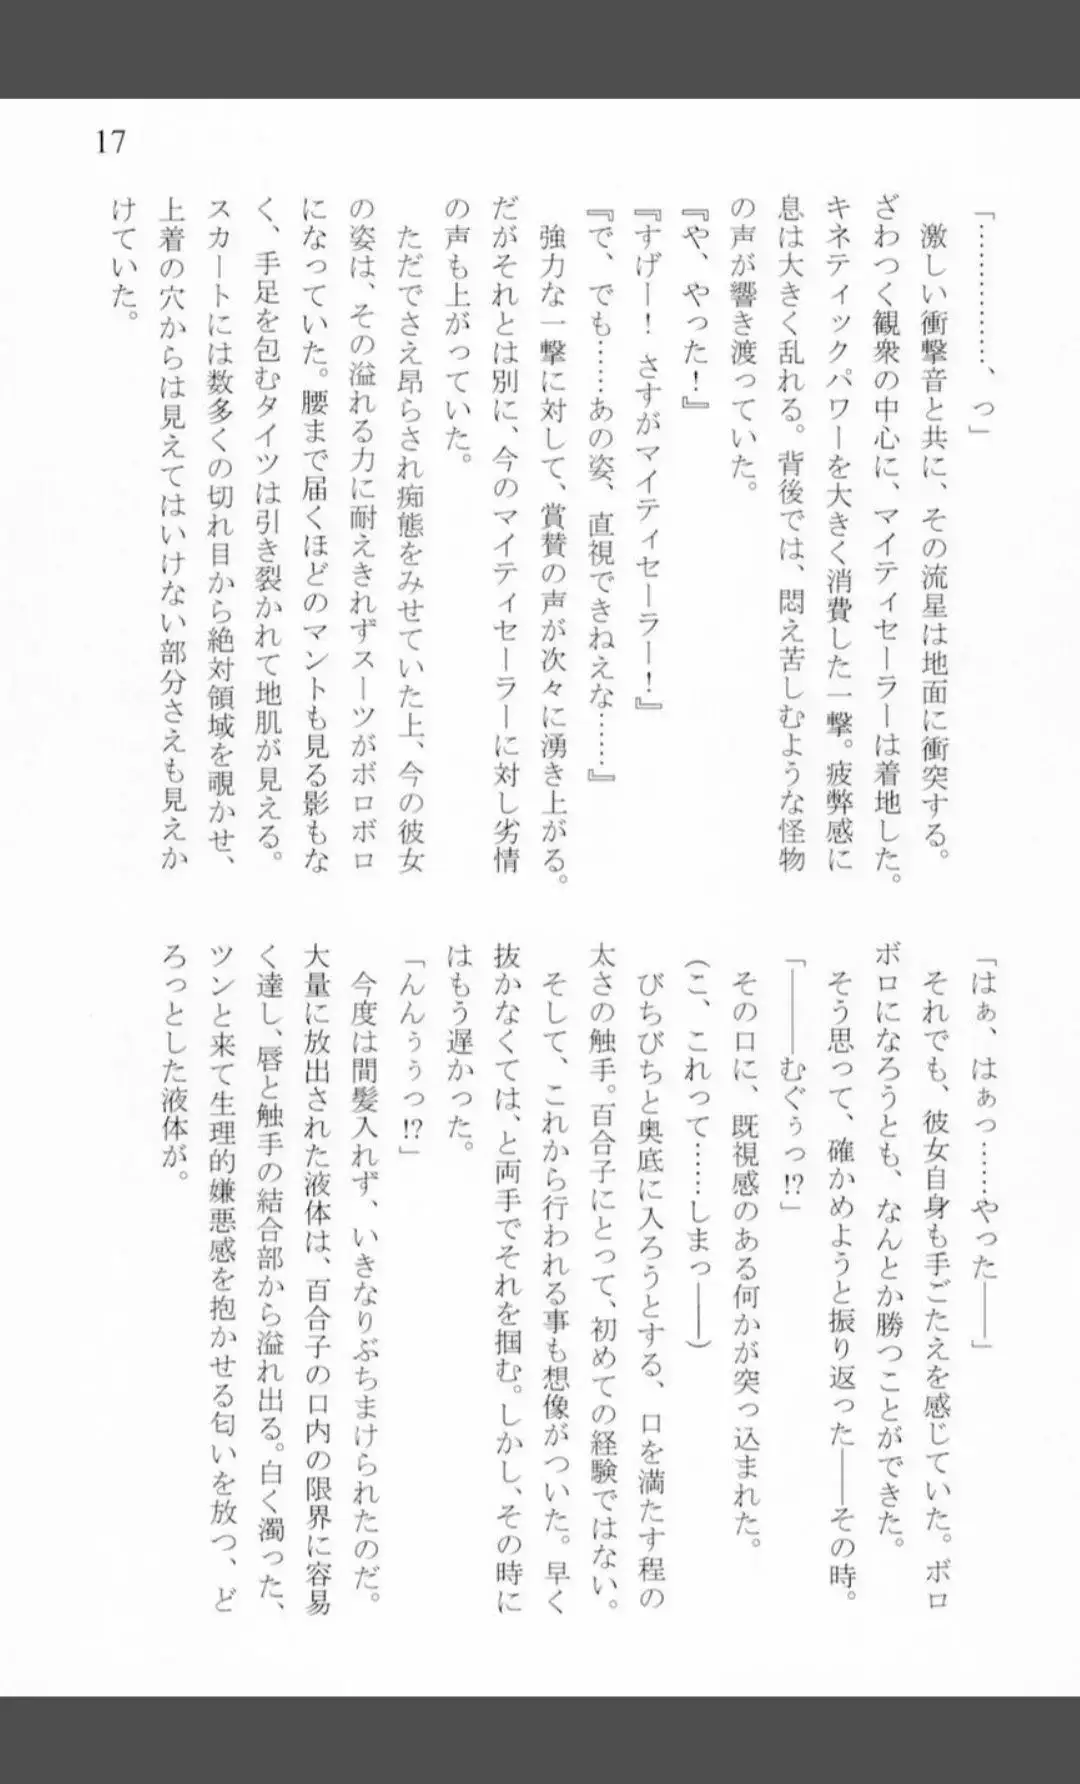 17
「…………、っ」
　激しい衝撃音と共に、その流星は地面に衝突する。
ざわつく観衆の中心に、マイティセーラーは着地した。
キネティックパワーを大きく消費した一撃。疲弊感に
息は大きく乱れる。背後では、悶え苦しむような怪物
の声が響き渡っていた。
『や、やった！』
『すげー！　さすがマイティセーラー！』
『で、でも……あの姿、直視できねえな……』
　強力な一撃に対して、賞賛の声が次々に湧き上がる。
だがそれとは別に、今のマイティセーラーに対し劣情
の声も上がっていた。
　ただでさえ昂らされ痴態をみせていた上、今の彼女
の姿は、その溢れる力に耐えきれずスーツがボロボロ
になっていた。腰まで届くほどのマントも見る影もな
く、手足を包むタイツは引き裂かれて地肌が見える。
スカートには数多くの切れ目から絶対領域を覗かせ、
上着の穴からは見えてはいけない部分さえも見えか
けていた。
「はぁ、はぁっ……やった――」
　それでも、彼女自身も手ごたえを感じていた。ボロ
ボロになろうとも、なんとか勝つことができた。
　そう思って、確かめようと振り返った――その時。
「――むぐぅっ!?」
　その口に、既視感のある何かが突っ込まれた。
（こ、これって……しまっ――）
　びちびちと奥底に入ろうとする、口を満たす程の
太さの触手。百合子にとって、初めての経験ではない。
　そして、これから行われる事も想像がついた。早く
抜かなくては、と両手でそれを掴む。しかし、その時に
はもう遅かった。
「んんぅぅっ!?」
　今度は間髪入れず、いきなりぶちまけられたのだ。
大量に放出された液体は、百合子の口内の限界に容易
く達し、唇と触手の結合部から溢れ出る。白く濁った、
ツンと来て生理的嫌悪感を抱かせる匂いを放つ、ど
ろっとした液体が。